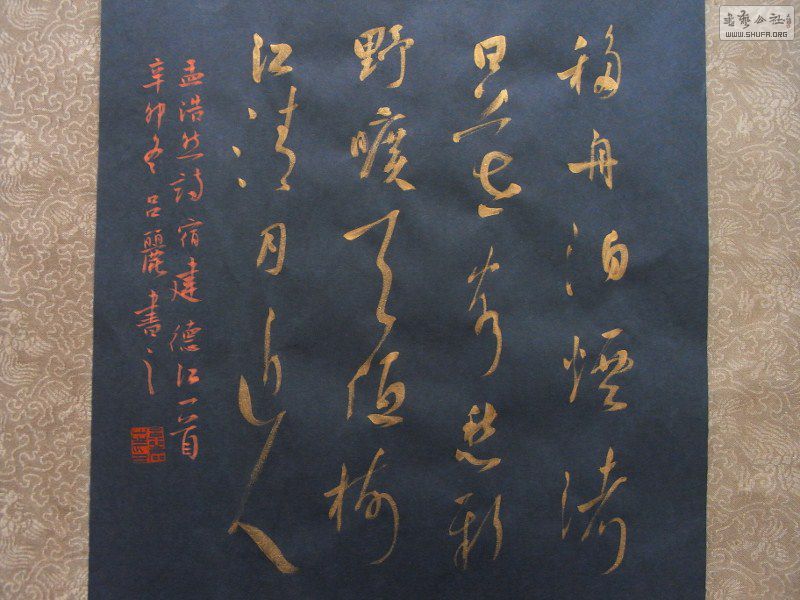 移舟泊煙渚
日暮客愁新
野曠天低樹
江清月近人
孟浩然詩宿建德江一首
辛卯冬呂麗書之
书艺公社
WWW.SHUFA.ORG